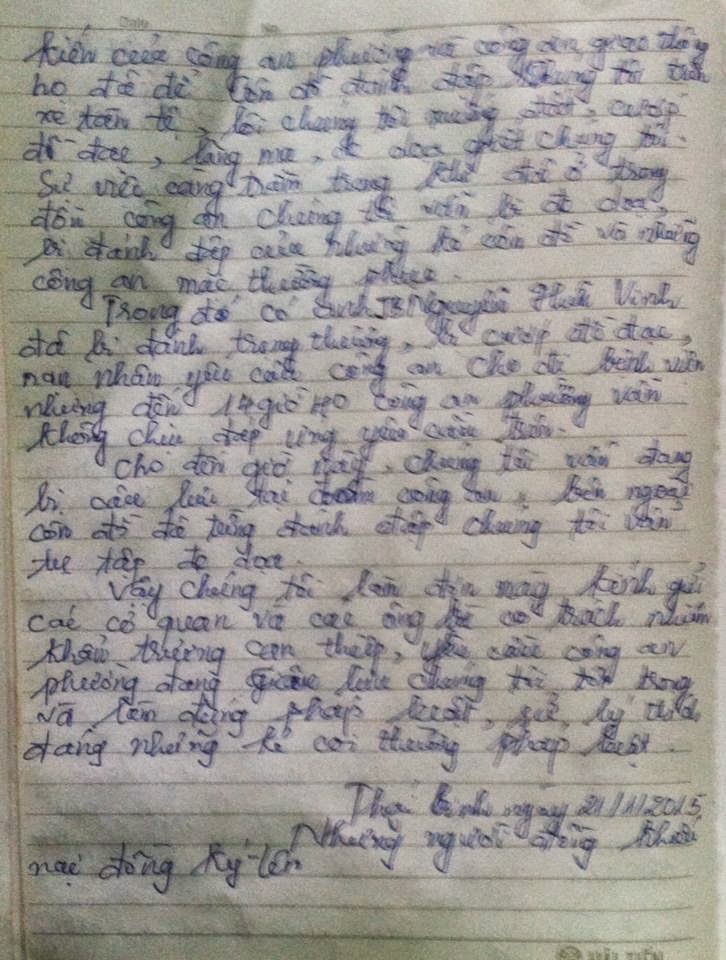 kiến của công an phường và công an giao thông
họ đã để côn đồ đánh đập chúng tôi trên
xe tàn tệ, lôi chúng tôi xuống đất, cướp
đồ đạc, lăng mạ, đe dọa giết chúng tôi.
Sự việc càng trầm trọng khi đã ở trong
đồn công an chúng tôi vẫn bị đe dọa,
bị đánh đập của những kẻ côn đồ và những
công an mặc thường phục.
Trong đó có anh Nguyễn Hữu Vinh
đã bị đánh trọng thương, bị cướp đồ đạc,
nạn nhân yêu cầu công an cho đi bệnh viện
nhưng đến 14 giờ 40 công an phường vẫn
không chịu đáp ứng yêu cầu trên.
Cho đến giờ này, chúng tôi vẫn đang
bị câu lưu tại công an, bên ngoài
côn đồ đã từng đánh đập chúng tôi vẫn
tụ tập đe dọa.
Vậy chúng tôi làm đơn này kính gửi
các cơ quan và các ông bà có trách nhiệm
khẩn trương can thiệp, yêu cầu công an
phường đang câu lưu chúng tôi tôn trọng
và làm đúng pháp luật, xử lý thích
đáng những kẻ coi thường pháp luật.
Thái Bình ngày 21/11/2015
Những người đứng khiếu
nại đồng ký tên